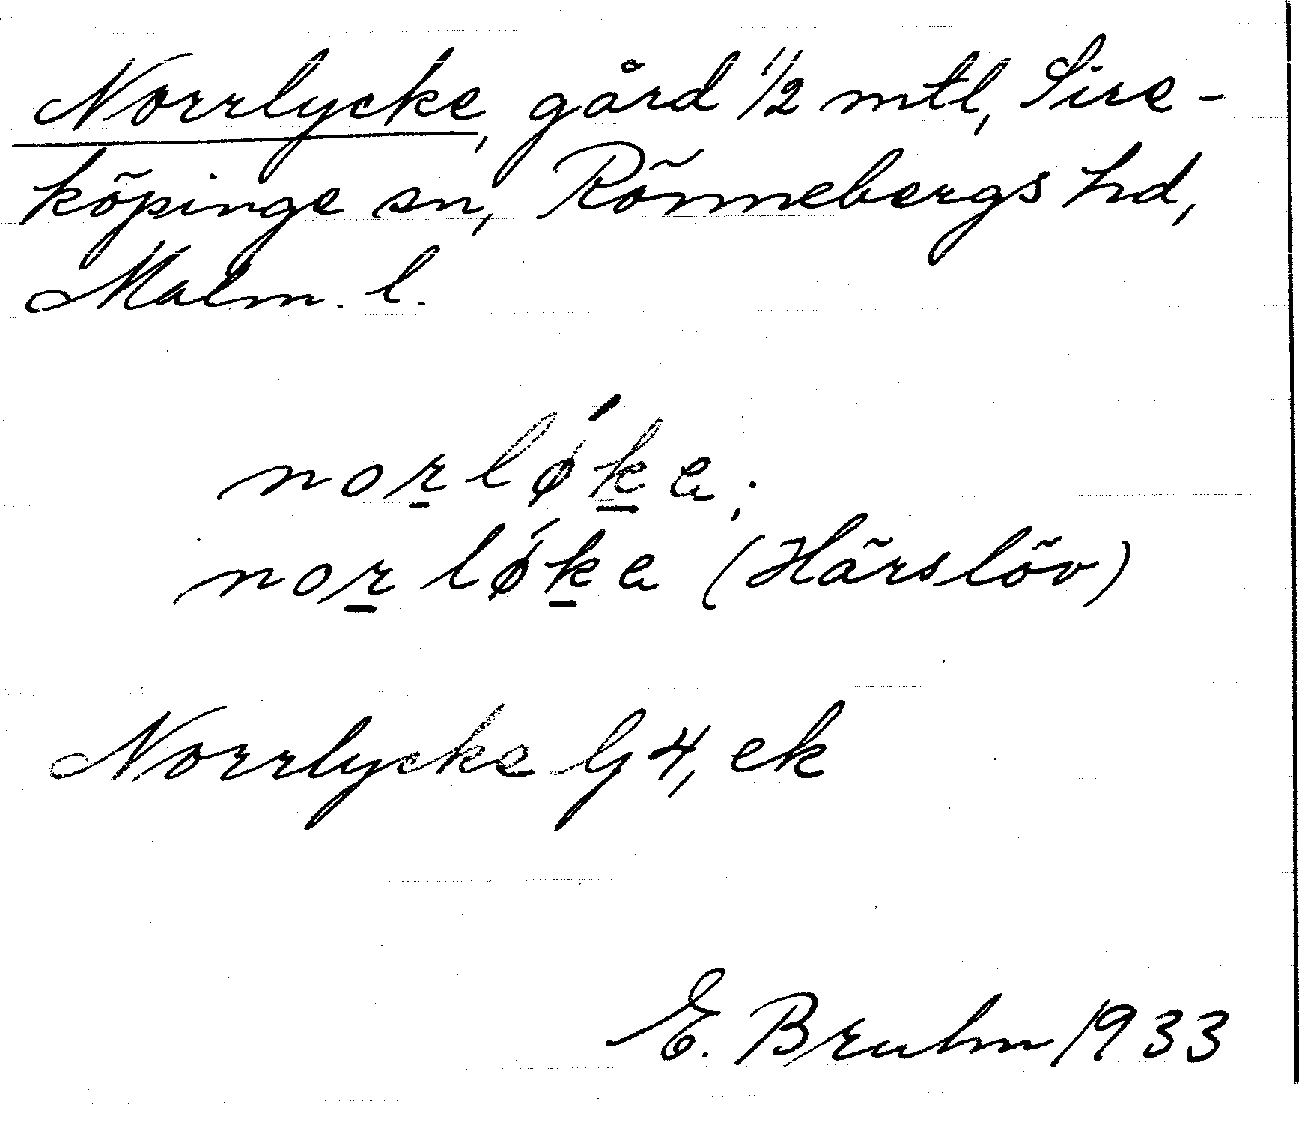 Norrlycke, gård 1/2 mtl, Sire-
köpinge sn, Rönnebergs hd,
Malm. l.
norløʹka;
norløʹka (Härslöv)
Norrlycke G 4, ek
E. Bruhn 1933